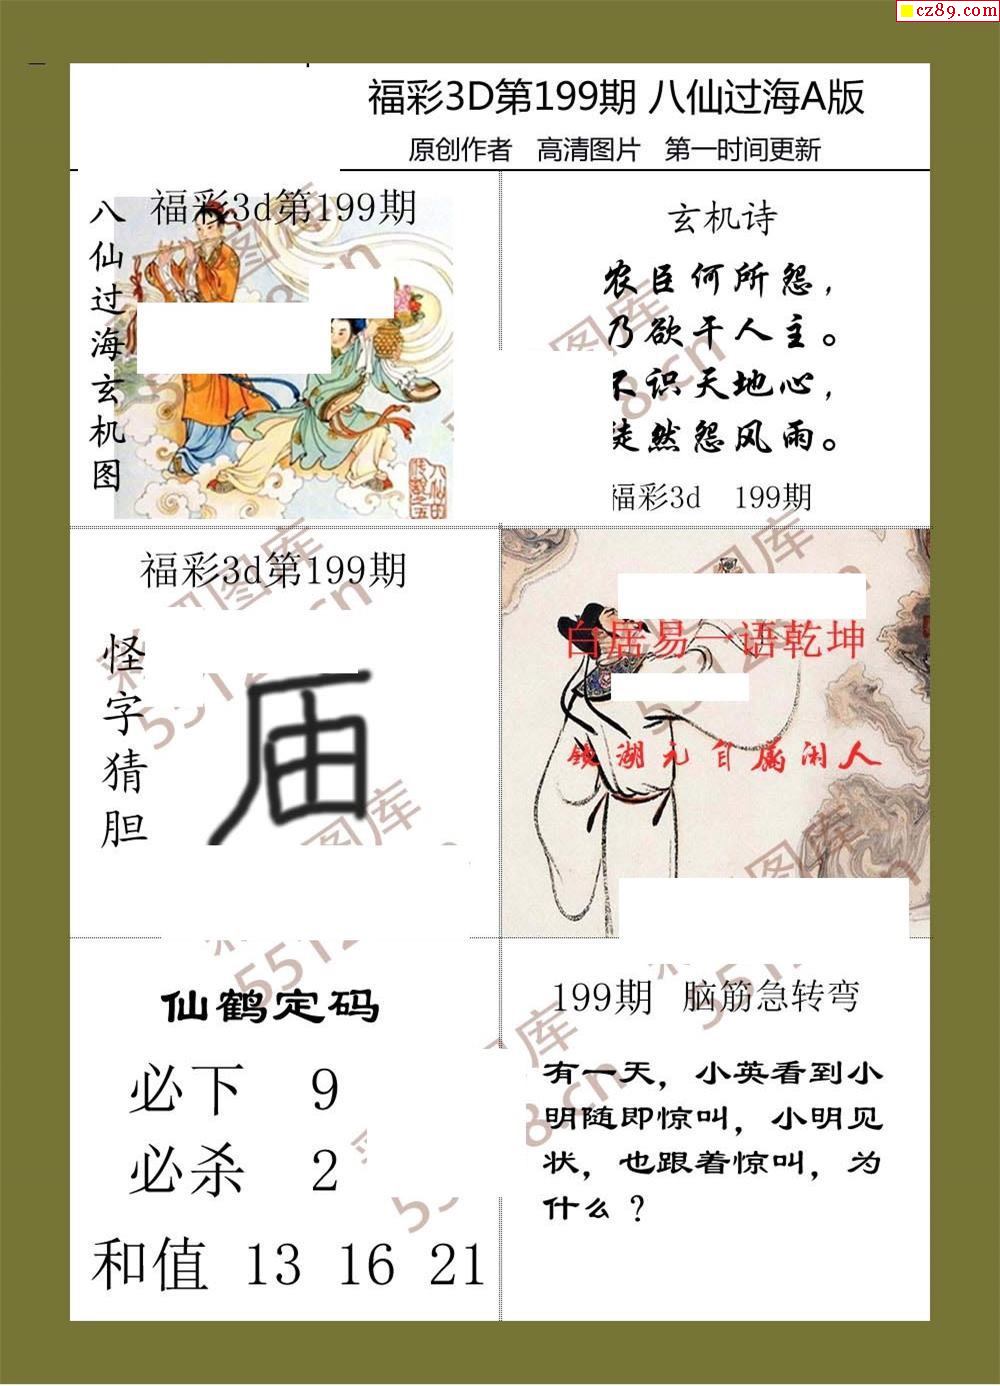 cz89.com
福彩3D第199期 八仙过海A版
原创作者 高清图片 第一时间更新
福彩3d第199期
八仙过海玄机图
玄机诗
农臣何所怨，
乃欲干人主。
不识天地心，
徒然怨风雨。
福彩3d 199期
福彩3d第199期
怪字猜胆
庙
白居易一语乾坤
镜湖元自属闲人
仙鹤定码
必下 9
必杀 2
和值 13 16 21
199期 脑筋急转弯
有一天，小英看到小
明随即惊叫，小明见
状，也跟着惊叫，为
什么？